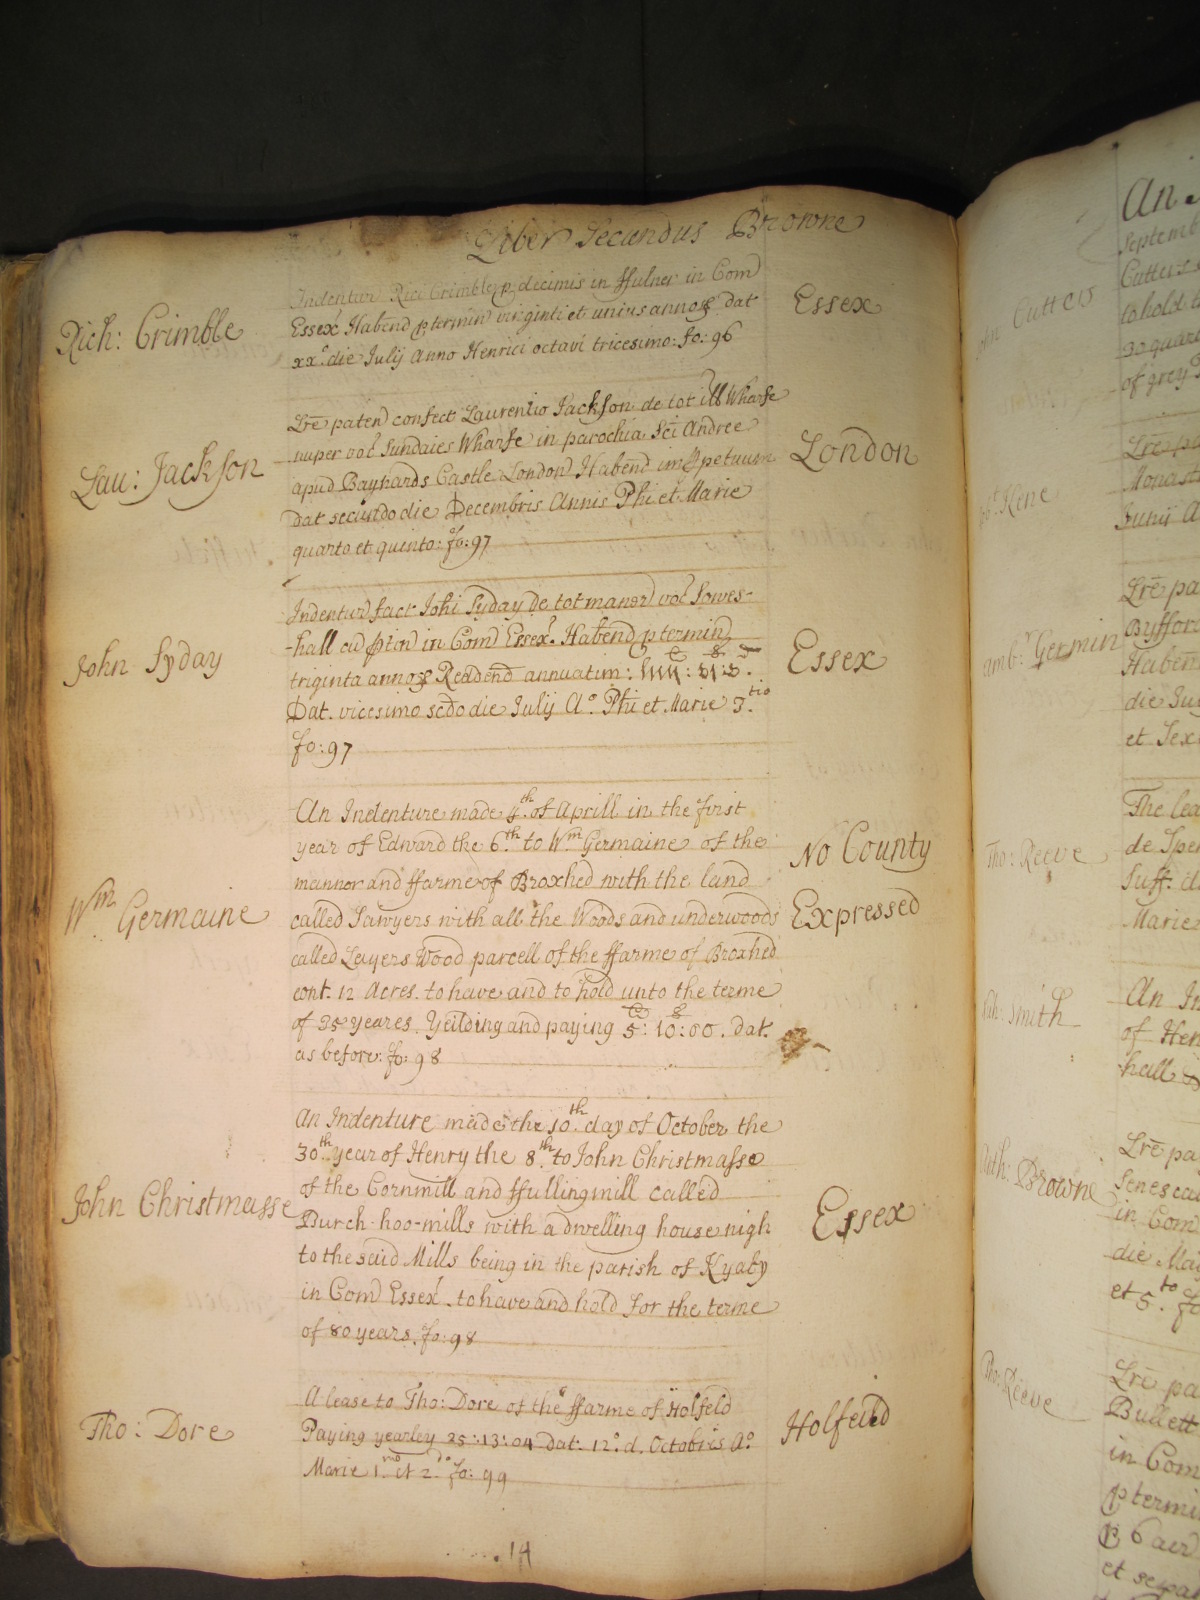 Liber Secundus Browne
Rich: Crimble
Indentur Rici Crimble p decimis in ffulner in Com
Essex Habend p termin virginti et unius annoȝ dat
xxo. die Julij Anno Henrici octavi tricesimo: fo: 96
Essex
Lau: Jackson
Lr̃e paten confect Laurentio Jackson de tot ill Wharfe
nuper voc Sundaies Wharfe in parochia Sci Andree
apud Baynards Castle London Habend imppetuum
dat secundo die Decembris Annis Phi et Marie
quarto et quinto: fo: 97
London
John Syday
Indentur fact Johi Syday de tot maner voc Sowes-
-hall cu ptin in Com Essex. Habend p termin
triginta annoȝ Reddend annuatim:
Dat. vicesimo scd̃o die Julij Ao Phi et Marie 3.tio
fo: 97
Essex
Wm Germaine
An Indenture made 4th. of Aprill in the first
year of Edward the 6.th to Wm Germaine of the
mannor and ffarme of Broxhed with the land
called Sawyers with all the Woods and underwoods
called Layers Wood parcell of the ffarme of Broxhed
cont. 12 Acres. to have and to hold unto the terme
of 35 yeares. Yeilding and paying 5: 10: 00. dat.
as before: fo: 98
No County
Expressed
John Christmasse
An Indenture made the 10th. day of October the
30th. year of Henry the 8th. to John Christmasse
of the Cornmill and ffullingmill called
Burch-hoo-mills with a dwelling house nigh
to the said Mills being in the parish of Kyrby
in Com Essex to have and hold for the terme
of 80 years. fo: 98
Essex
Tho: Dore
A lease to Tho: Dore of the ffarme of Holfeld
Paying yearley 25: 13: 04 dat. 12o. d. Octobris Ao.
Marie 1.mo et 2.do fo: 99
Holfeild
14
An
Septemb
to hold
of grey
Lr̃e pa
Monast
Kene
Lr̃e pa
Byffor
Haben
die Ju
et Sex
amb: Germin
The lea
de Spe
Suff. d
Marie
Tho: Reeve
An In
of Hen
hall
Smith
Lr̃e pa
Senesca
in Com
die Ma
et 5.to fo
Browne
Lr̃e pa
Bullett
in Com
p termi
et sepa
Tho: Reeve